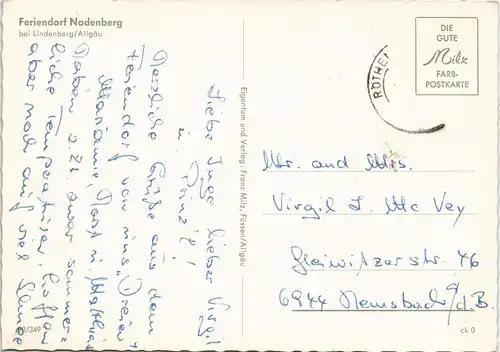 Feriendorf Nadenberg
bei Lindenberg/Allgäu
Liebe Inge, lieber Virgil
u. Prinz!
Herzliche Grüße aus dem
Feriendorf von uns "Dreien"
Marianne, Horst u. Matthias
Haben z. Zt. zwar sommer-
liche Temperaturen, hoffen
aber noch auf viel Schnee
40/349
Eigentum und Verlag: Franz Milz, Füssen/Allgäu
DIE
GUTE
Milz
FARB-
POSTKARTE
RÖTHE
Mr. and Mrs.
Virgil L. Mc Vey
Gleiwitzerstr. 46
6944 Hemsbach a/d.B.
ck 0